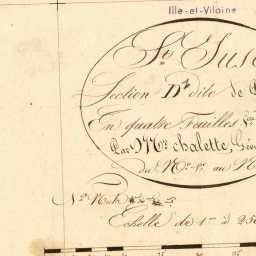 Ille-et-Vilaine
St. Sus
Section D. dite de
En quatre Feuilles
Par Mr. chalette Géo
du No. 1er au No
Echelle de 1 à 250